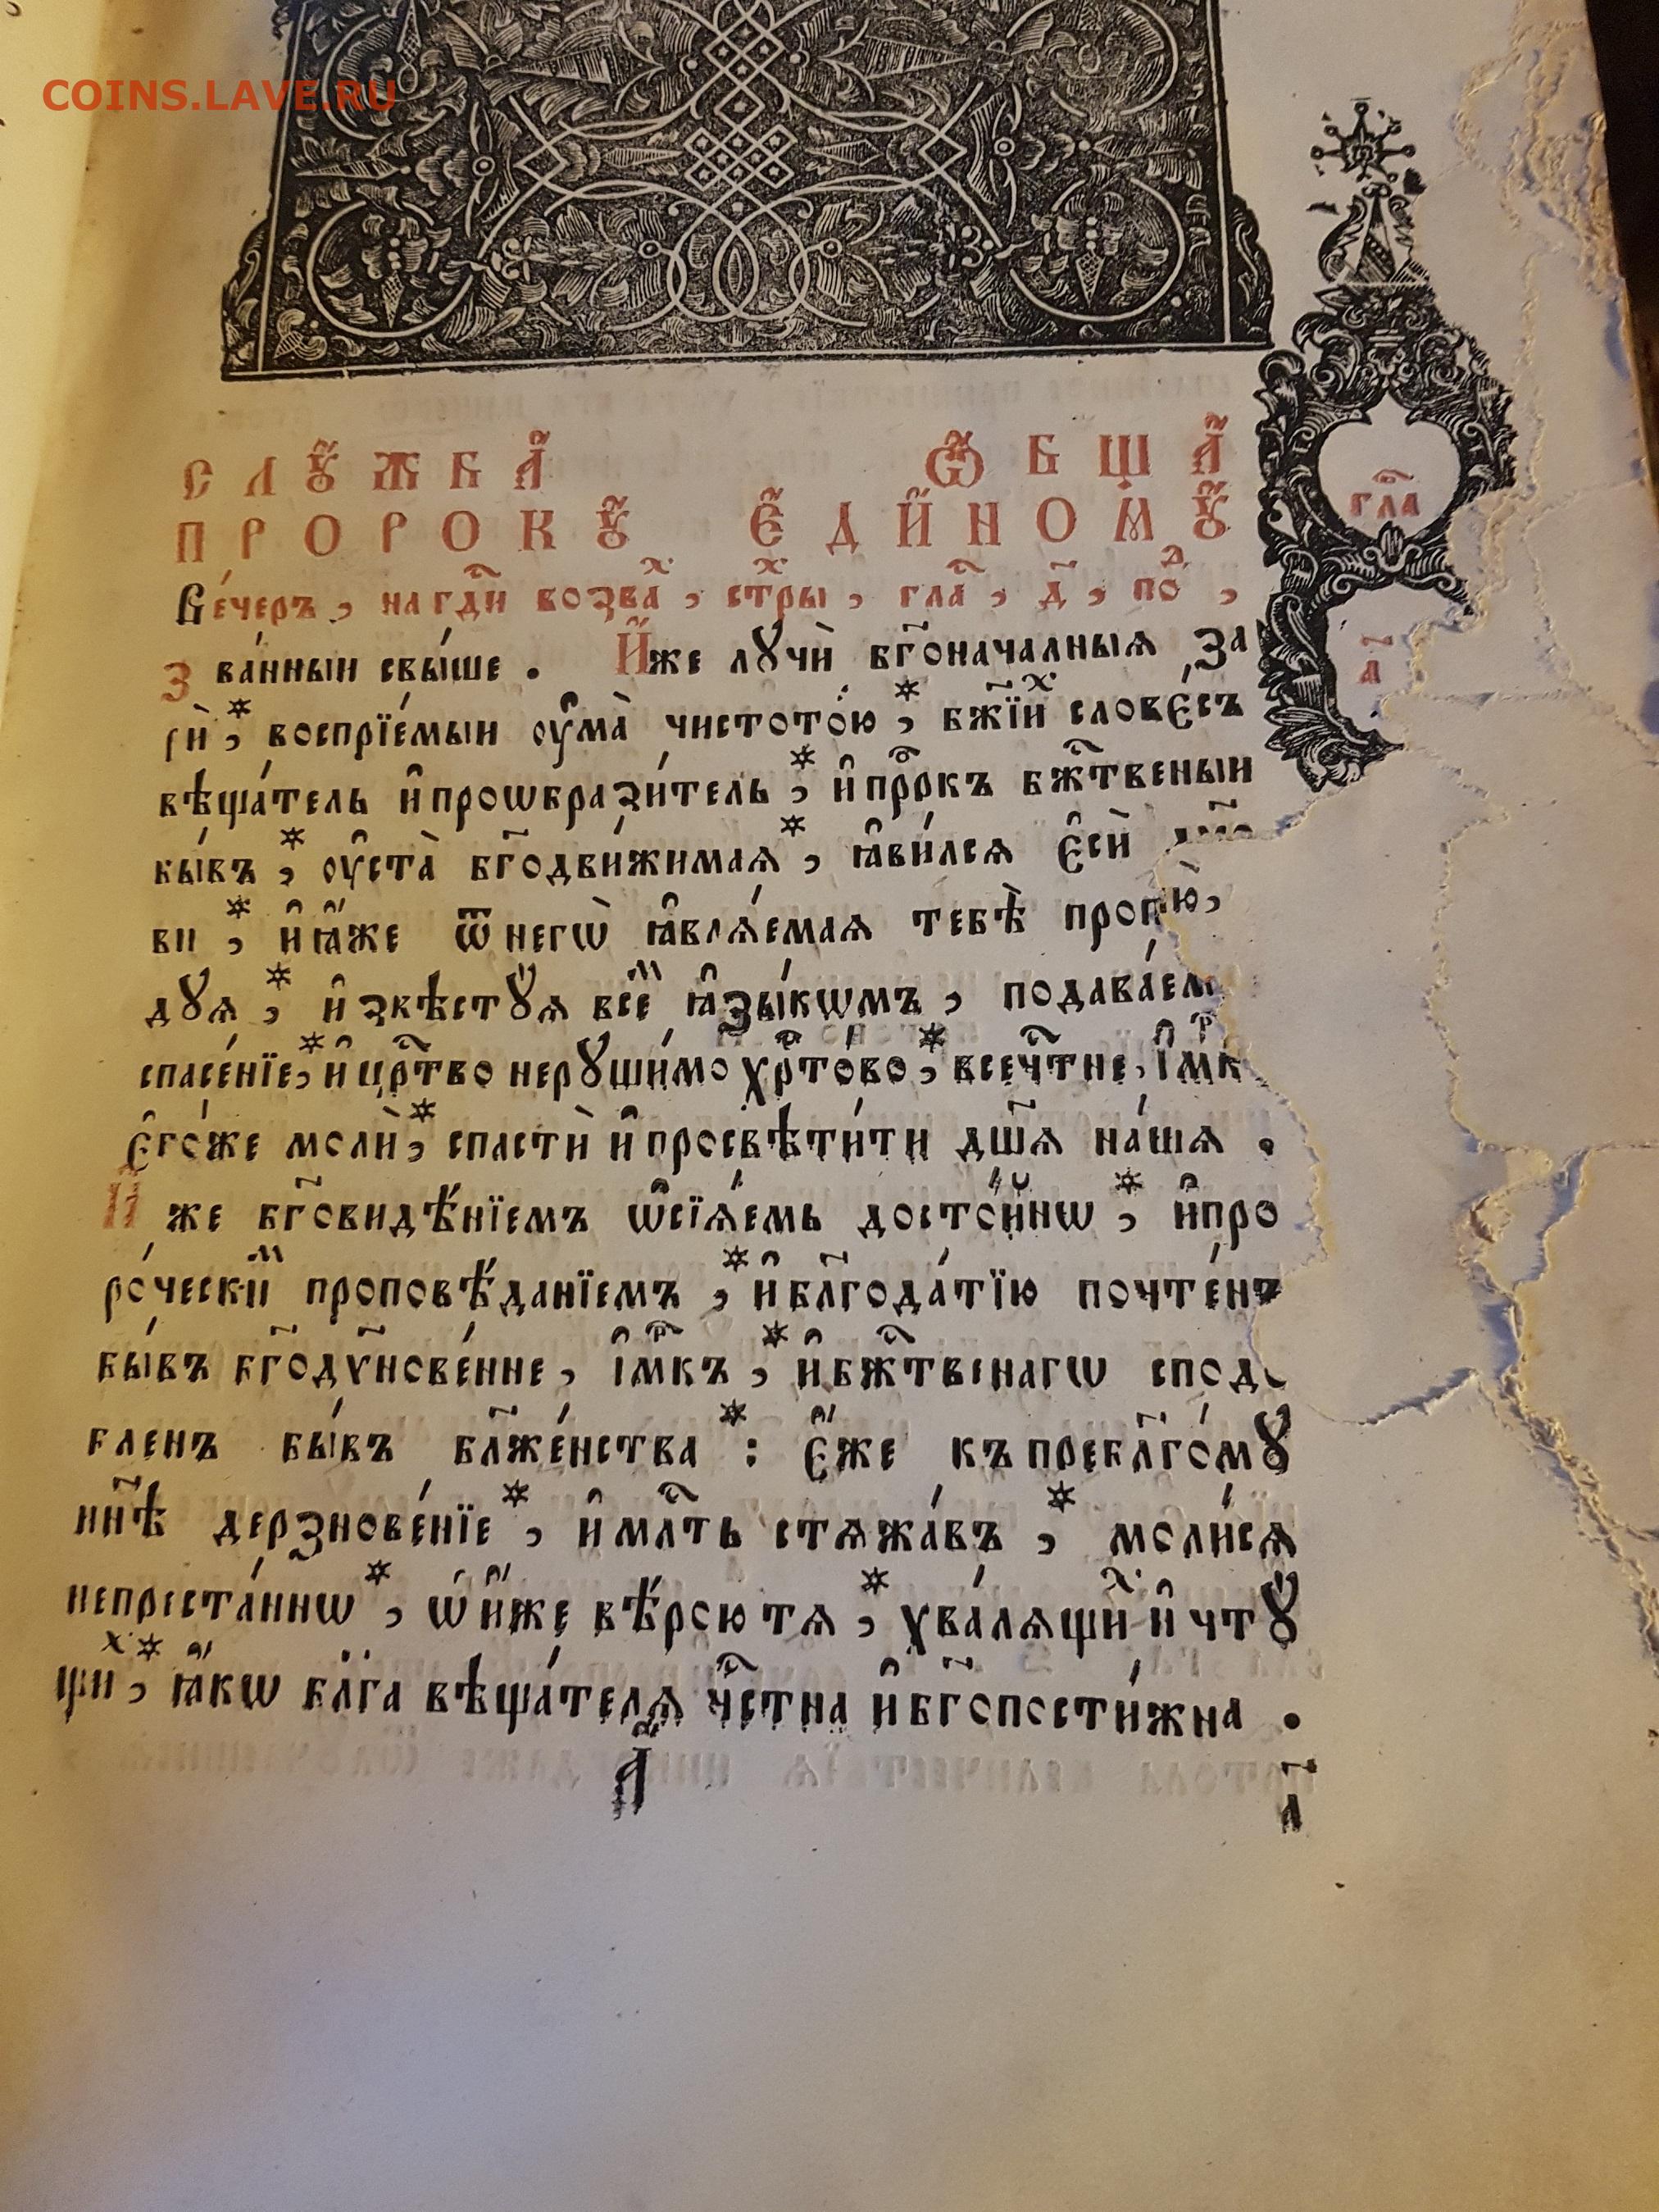 COINS.LAVE.RU
СЛꙊЖБА̀ Ѻ҆БЩА̀
ПРОРОКꙊ̀ Є҆ДИ́НОМꙊ̀
гла
Ве́черъ, на гд҇и возва́х, ст҇хры, гла҇, д҃, по́д,
зва́нныи свы́ше . И҆́же лꙋчѝ бг҃оначалныѧ, за
а҃
рѝ *, воспрїе́мыи ᲂу҆ма̀ чистото́ю *, бж҃їих слове́съ
вѣща́тель и҆ проѡбрази́тель *, и҆ прⷪ҇ркъ бжⷭ҇твеныи
бы́въ *, ᲂу҆ста̀ бг҃одви́жимаѧ *, ꙗ҆ви́лсѧ є҆сѝ
ви *, и҆ ꙗ҆́же ѿ негѡ̀ ꙗ҆влѧ́емаѧ тебѣ̀
дꙋѧ *, и҆ звѣствꙋѧ все́м ꙗ҆зы́кѡмъ, подава́ем
спасе́нїе *, и҆ црⷭ҇тво нерꙋши́мо хрⷭ҇то́во *, всечⷭ҇тне, і҆мⷬ҇къ
є҆го́же молѝ *, спастѝ и҆ просвѣти́ти дш҃ѧ на́шѧ .
И҆́же бг҃овидѣ́нїемъ ѡ҆сїѧ́емь досто́йнѡ *, и҆ про
ро́ческим проповѣ́данїемъ *, и҆ блг҃ода́тїю почте́нъ
бы́въ бг҃одꙋхнове́нне, і҆мⷬ҇къ *, и҆ бжⷭ҇твенагѡ спод
бленъ бы́въ бл҃же́нства * : є҆́же къ пребл҃го́мꙋ
нн҃ѣ дерзнове́нїе *, и҆ млⷭ҇ть стѧжа́въ *, моли́сѧ
непреста́ннѡ *, ѡ҆ и҆́же вѣ́рою тѧ *, хва́лѧщих и҆ чтꙋ
щих *, ꙗ҆́кѡ бл҃га вѣща́телѧ чⷭ҇тна и҆ бг҃опости́жна .
а҃